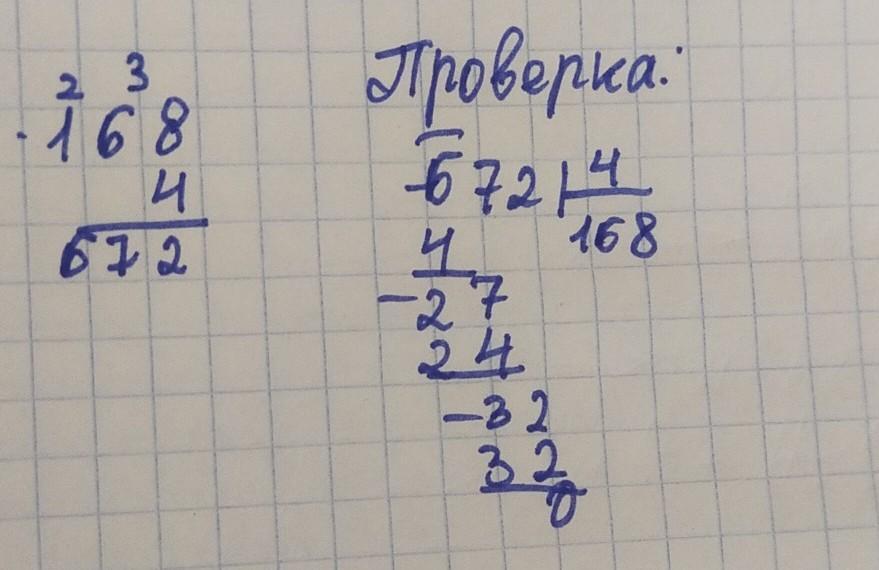 2 3
· 168
4
672
Проверка:
-672 | 4
168
4
-27
24
-32
32
0